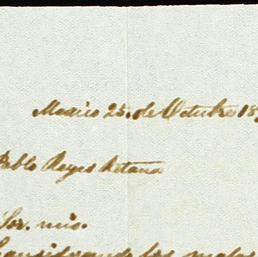 Mexico 25. de Octubre 18
Pablo Reyes Retana
Sor. mio.
Considerando los malos